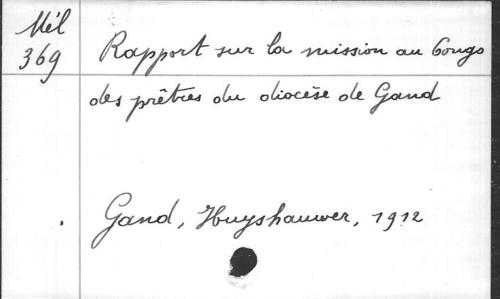 Mél
369
Rapport sur la mission au Congo
des prêtres du diocèse de Gand
Gand, Huyshauwer, 1912